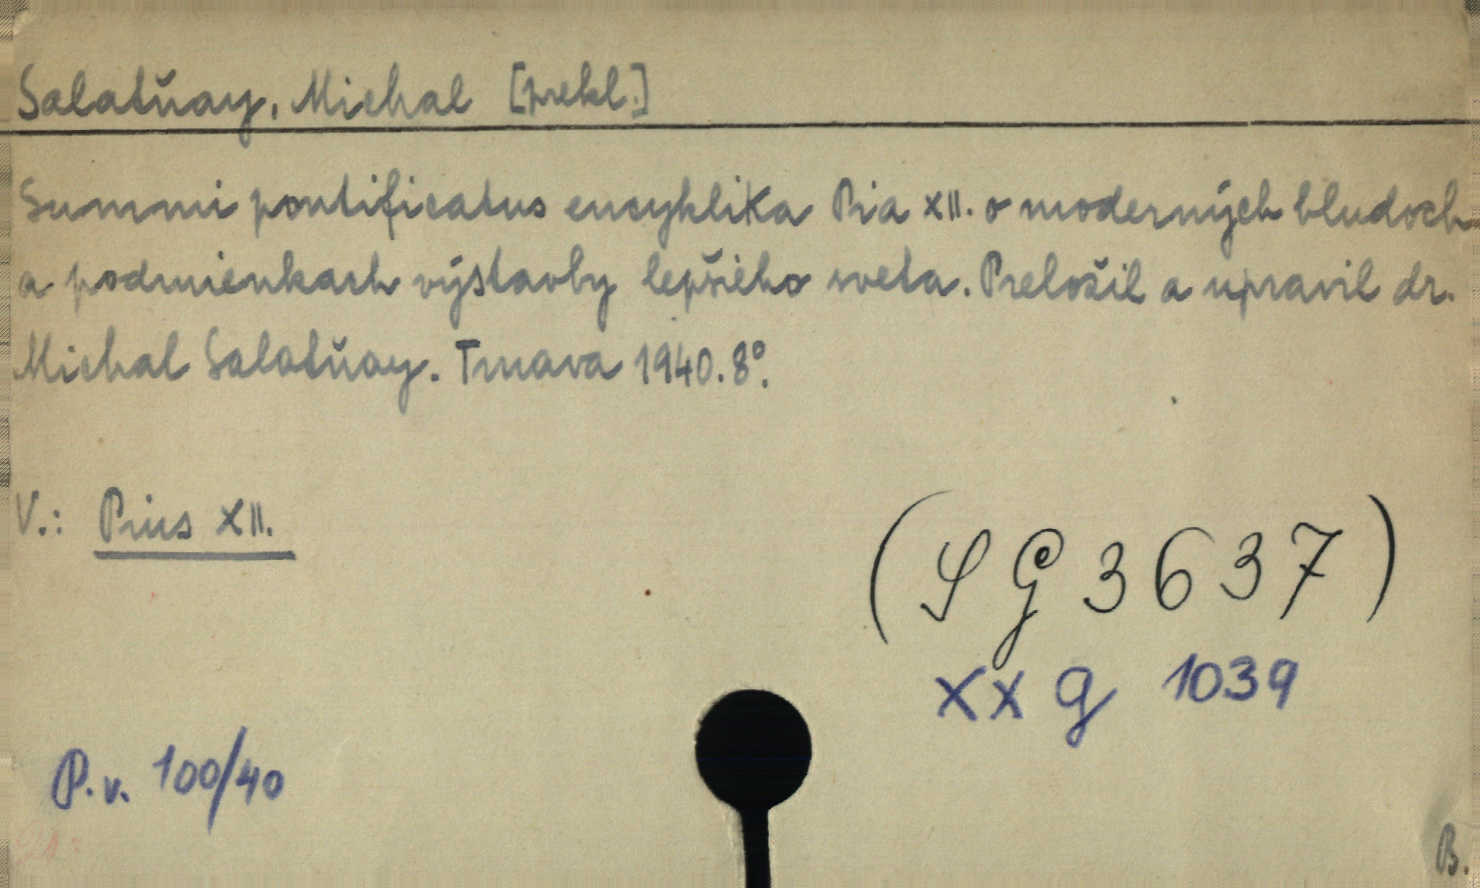 Salatňay, Michal [prekl.]
Summi pontificatus encyklika Pia XII. o moderných bludoch
a podmienkach výstavby lepšieho sveta. Preložil a upravil dr.
Michal Salatňay. Trnava 1940. 8°.
V.: Pius XII.
(SG 3637)
XX g 1039
P.v. 100/40
B.